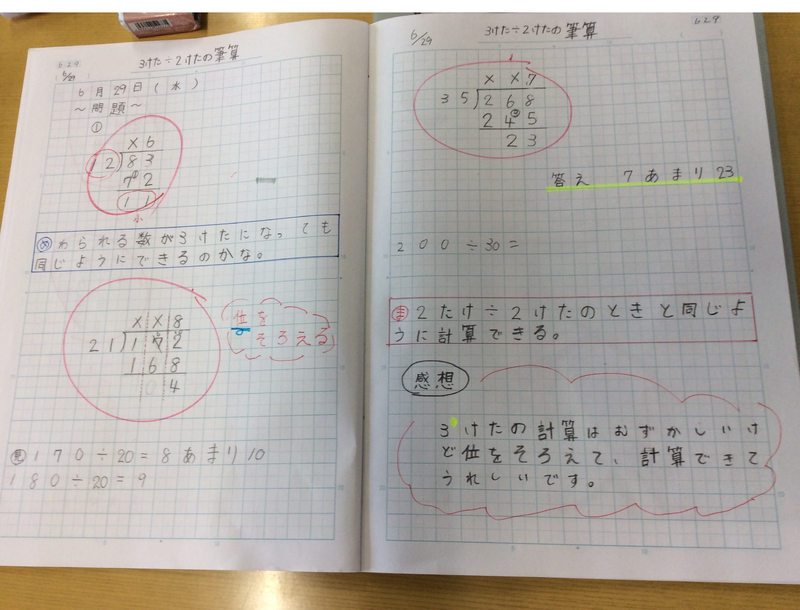 3けた÷2けたの筆算
6.29
6/29
6月29日(水)
〜問題〜
①
×6
12)83
72
11
め われる数が3けたになっても
同じようにできるのかな。
××8
21)172
168
04
位を
そろえる
見 170÷20=8あまり10
180÷20=9
6/29
3けた÷2けたの筆算
6.29
××7
35)268
245
23
答え 7あまり23
200÷30=
ま 2たけ÷2けたのときと同じよ
うに計算できる。
感想
3けたの計算はむずかしいけ
ど位をそろえて、計算できて
うれしいです。